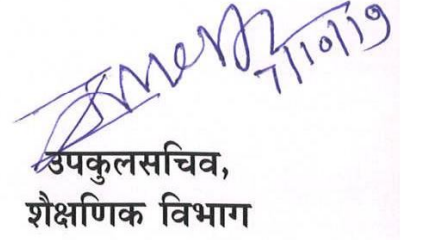 7/10/19
उपकुलसचिव,
शैक्षणिक विभाग